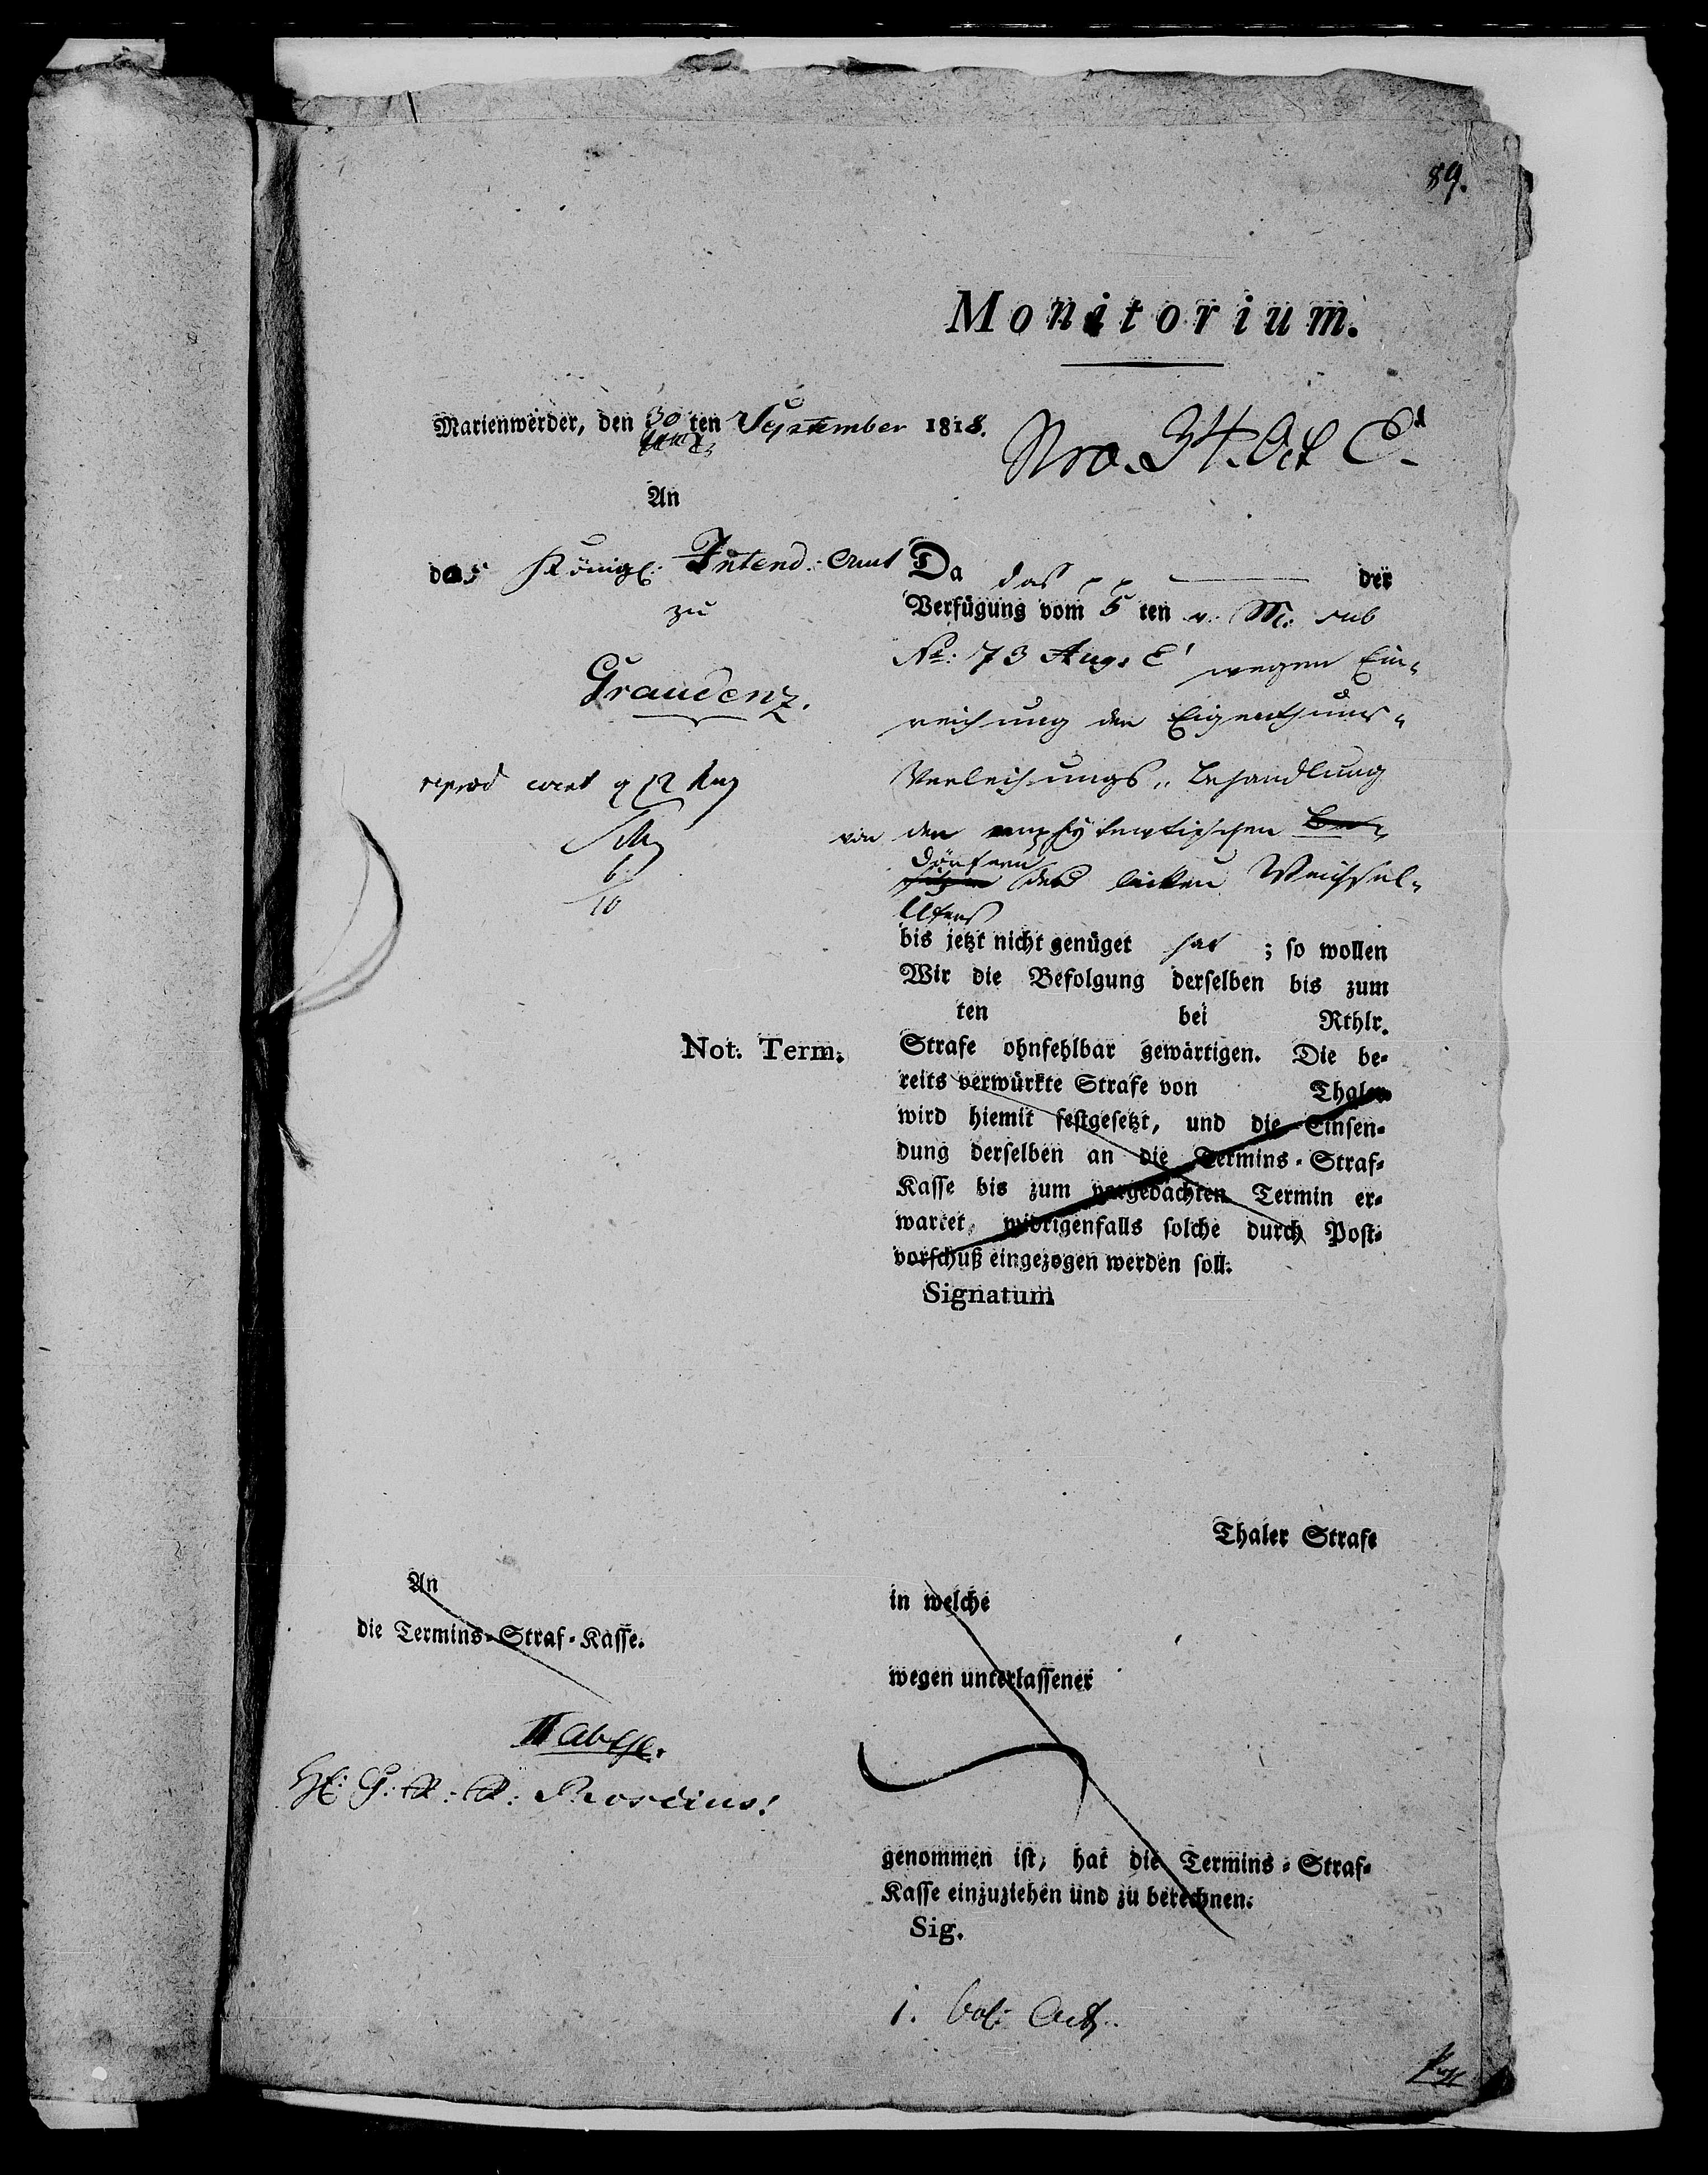 89.
Monitorium.
Marienwerder, den 30 ten September 1818.
Nro. 34. Oct C.
An
das Königl: Intend: Amt
zu
Graudenz.
Da das der
Verfügung vom 5 ten v. M. sub
No: 73 Aug. C wegen Ein-
reichung der Eigenthums-
Verleihungs-Behandlung
von den emphyteutischen
Dörfern des linken Weichsel-
Ufers
bis jetzt nicht genüget hat ; so wollen
Wir die Befolgung derselben bis zum
ten bei Rthlr.
Strafe ohnfehlbar gewärtigen. Die be-
reits verwürkte Strafe von Thaler
wird hiemit festgesetzt, und die Einsen-
dung derselben an die Termins-Straf-
Kasse bis zum vorgedachten Termin er-
wartet, widrigenfalls solche durch Post-
vorschuß eingezogen werden soll.
Signatum
6
10
Not. Term.
Thaler Strafe
An
die Termins-Straf-Kasse.
in welche
wegen unterlassener
II Abth.
H: G: R: R:
genommen ist, hat die Termins-Straf-
Kasse einzuziehen und zu berechnen.
Sig.
1. Vol: Act.